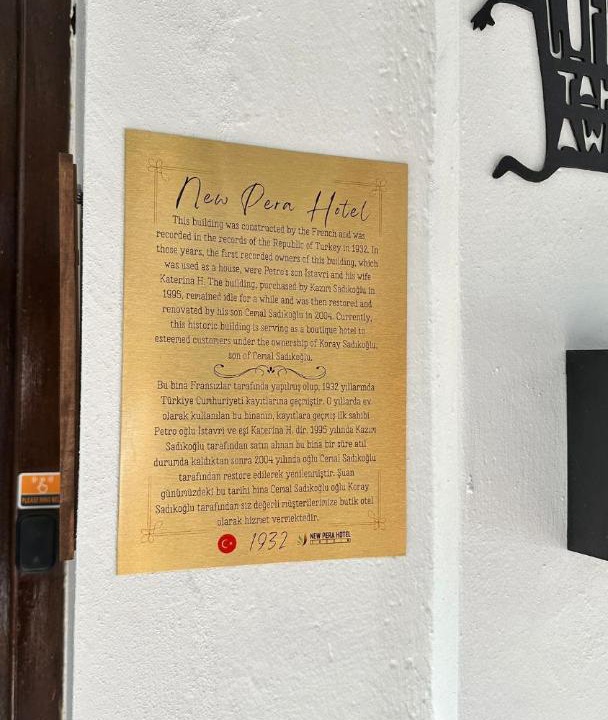 New Pera Hotel
This building was constructed by the French and was
recorded in the records of the Republic of Turkey in 1932. In
those years, the first recorded owners of this building, which
was used as a house, were Petro's son Istavri and his wife
Katerina H. The building, purchased by Kazım Sadıkoğlu in
1995, remained idle for a while and was then restored and
renovated by his son Cemal Sadıkoğlu in 2004. Currently,
this historic building is serving as a boutique hotel to
esteemed customers under the ownership of Koray Sadıkoğlu,
son of Cemal Sadıkoğlu.
Bu bina Fransızlar tarafında yapılmış olup, 1932 yıllarında
Türkiye Cumhuriyeti kayıtlarına geçmiştir. O yıllarda ev
olarak kullanılan bu binanın, kayıtlara geçmiş ilk sahibi
Petro oğlu İstavri ve eşi Katerina H. dir. 1995 yılında Kazım
Sadıkoğlu tarafından satın alınan bu bina bir süre atıl
durumda kaldıktan sonra 2004 yılında oğlu Cemal Sadıkoğlu
tarafından restore edilerek yenilenmiştir. Şuan
günümüzdeki bu tarihi bina Cemal Sadıkoğlu oğlu Koray
Sadıkoğlu tarafından siz değerli müşterilerimize butik otel
olarak hizmet vermektedir.
1932 NEW PERA HOTEL
TAH
AW